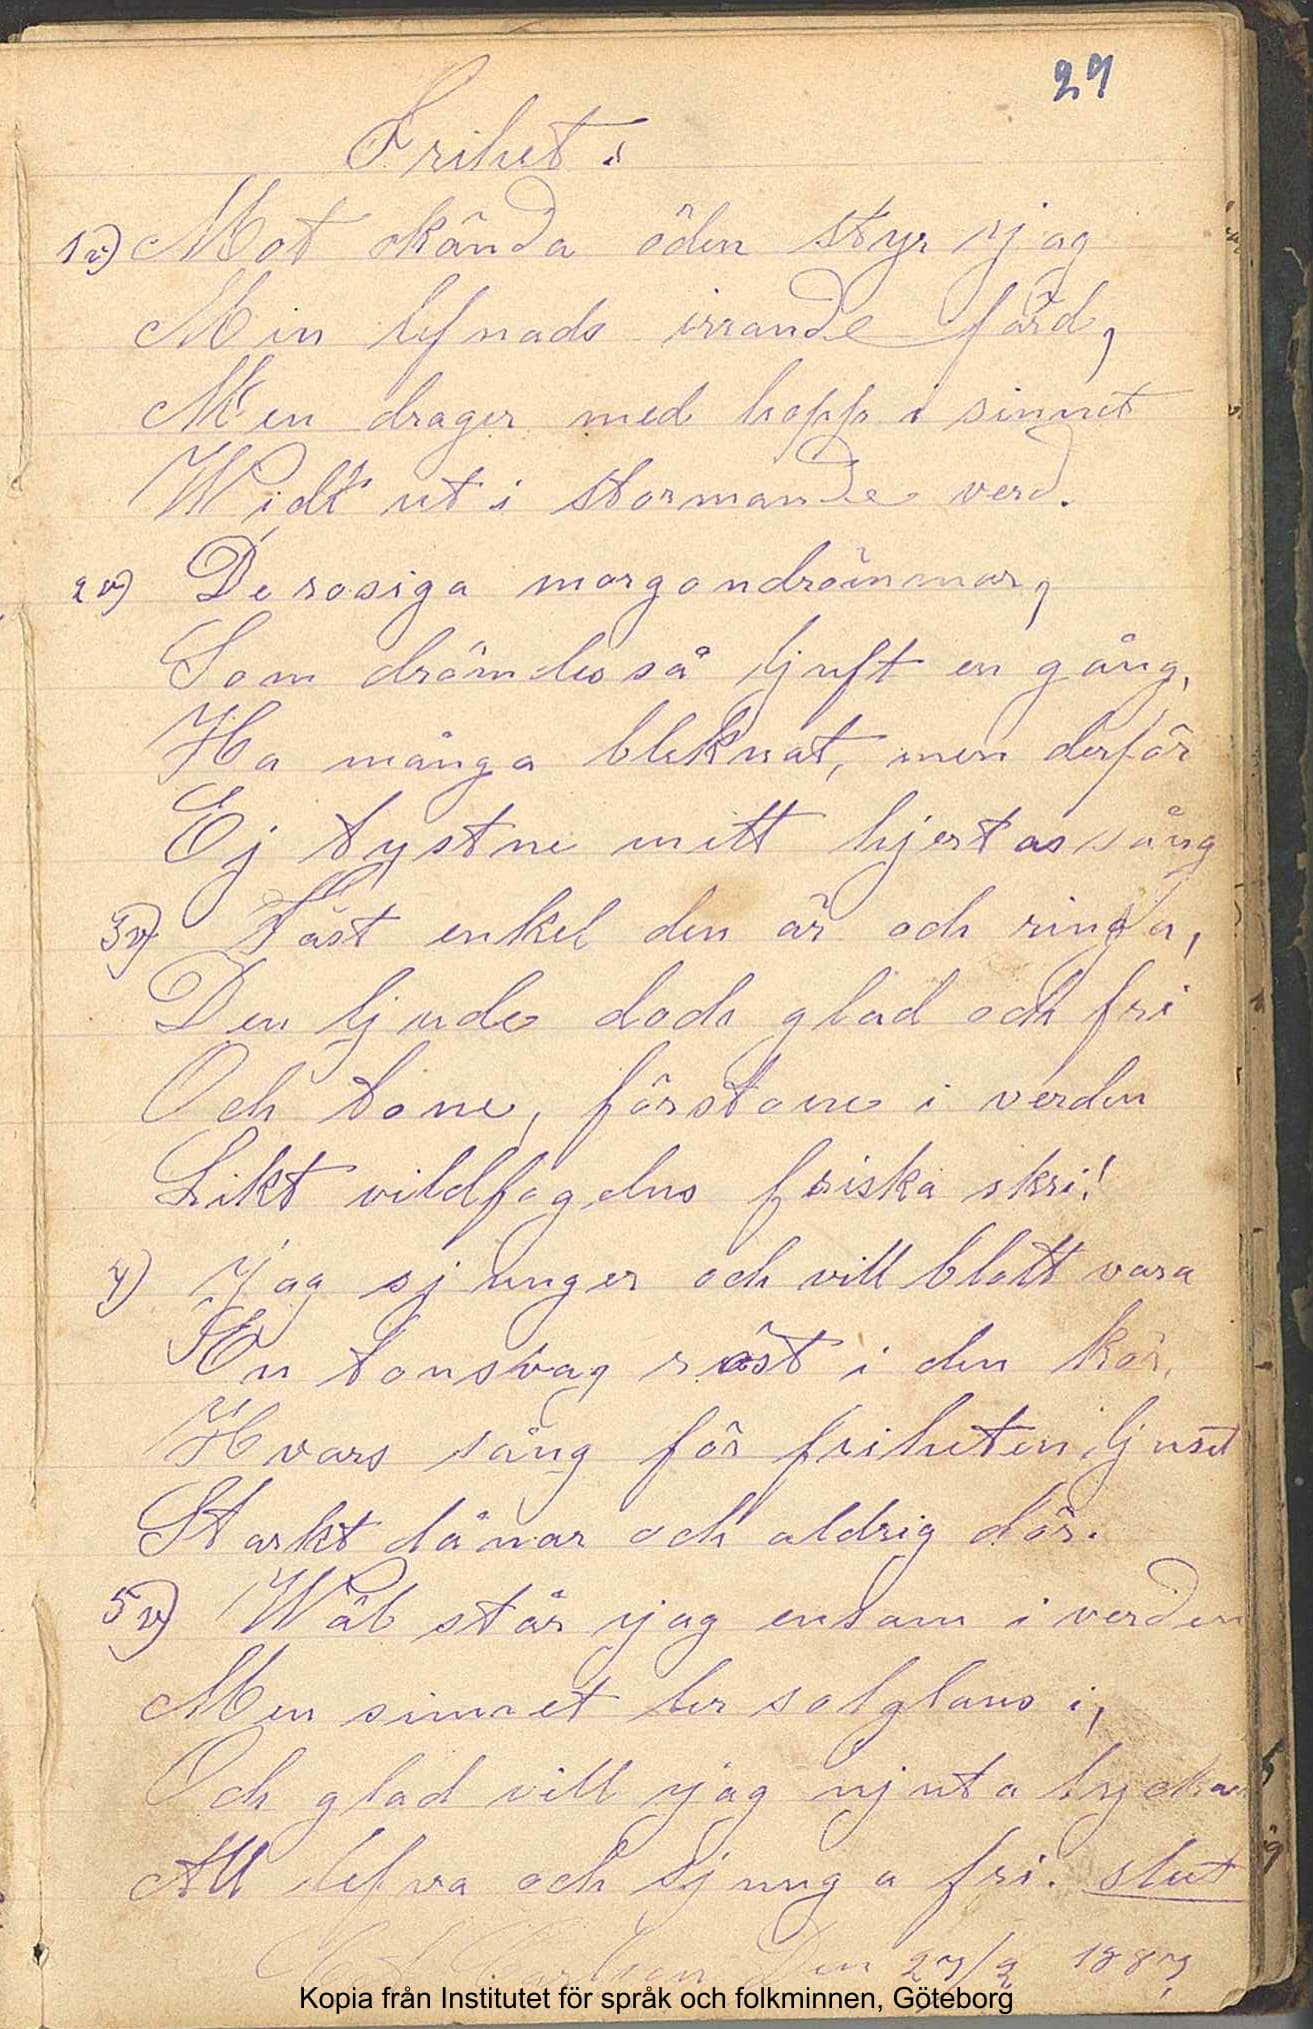 29
Frihet.
1v) Mot okända öden styr jag
Min lefnads irrande färd,
Men drager med hopp i sinnet
Widt ut i stormande verd.
2v) De rosiga morgondrömmar,
Som drömdes så ljuft en gång,
Ha många bleknat, men derför
Ej tystne mitt hjertas sång
3v) Fast enkel den är och ringa,
Den ljude dock glad och fri
Och tone, förstone i verden
Likt vildfogelns friska skri!
4) Jag sjunger och vill blott vara
En tonsvag röst i den kör,
Hvars sång för friheten, ljuset
Starkt dånar och aldrig dör.
5v) Wäl står jag ensam i verden
Men sinnet ler solglans i,
Och glad vill jag njuta lyckan
Att lefva och sjunga fri. slut
Den 27/2 1887
Kopia från Institutet för språk och folkminnen, Göteborg